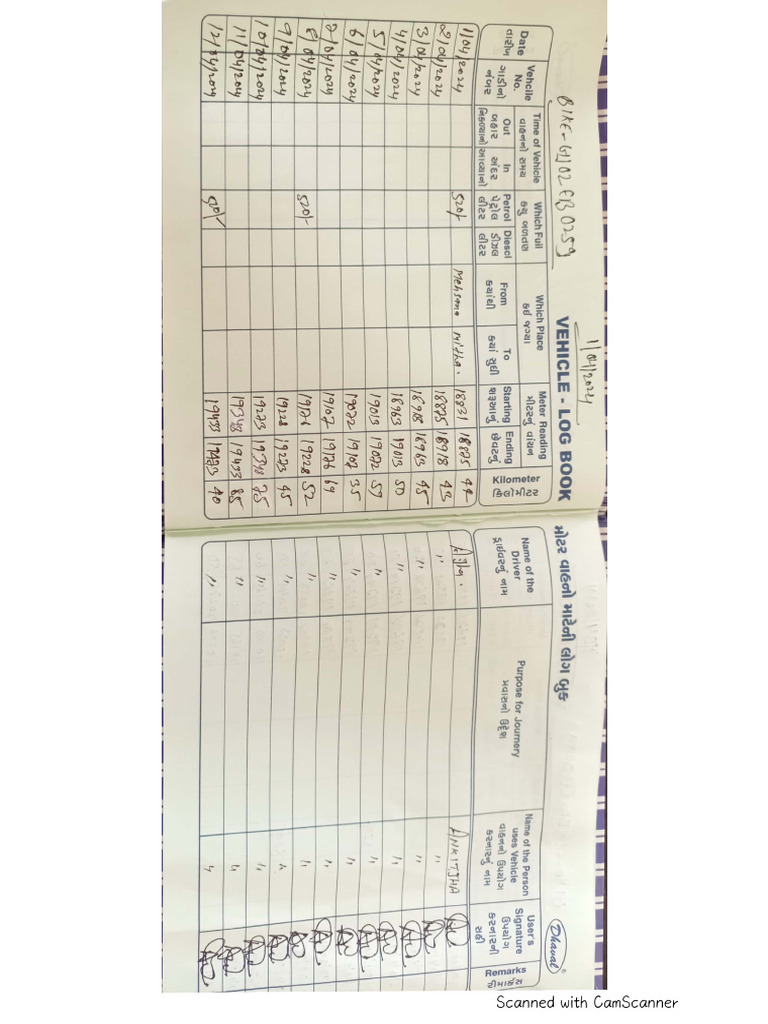 BIKE - GJ02EB0259
1/04/2024
VEHICLE - LOG BOOK
મોટર વાહનો માટેની લોગ બુક
Dhaval
Date
તારીખ
Vehcile No.
ગાડીનો નંબર
Time of Vehicle
વાહનનો સમય
Out
બહાર
In
અંદર
Which Full
કયુ બળતણ
Petrol
પેટ્રોલ
લીટર
Diesel
ડીઝલ
લીટર
Which Place
કઈ જગ્યા
From
કયાંથી
To
કયાં સુધી
Meter Reading
મીટરનું વાંચન
Starting
શરૂઆતનું
Ending
છેવટનું
Kilometer
કિલોમીટર
Name of the Driver
ડ્રાઈવરનું નામ
Purpose for Journery
પ્રવાસનો ઉદ્દેશ
Name of the Person uses Vehicle
વાહનનો ઉપયોગ કરનારનું નામ
User's Signature
ઉપયોગ કરનારની સહી
Remarks
રીમાર્કસ
1/04/2024 520/- Mehsana 18831 18875 44 ANKIT JHA
2/04/2024 18875 18918 43 "
3/04/2024 18918 18963 45 " "
4/04/2024 18963 19013 50 " "
5/04/2024 19013 19072 59 " "
6/04/2024 19072 19107 35 " "
7/04/2024 19107 19176 69 " "
8/04/2024 520/- 19176 19228 52 " "
9/04/2024 19228 19273 45 " "
10/04/2024 19273 19348 75 " "
11/04/2024 19348 19433 85 " "
12/04/2024 19433 19473 40 " "
Scanned with CamScanner